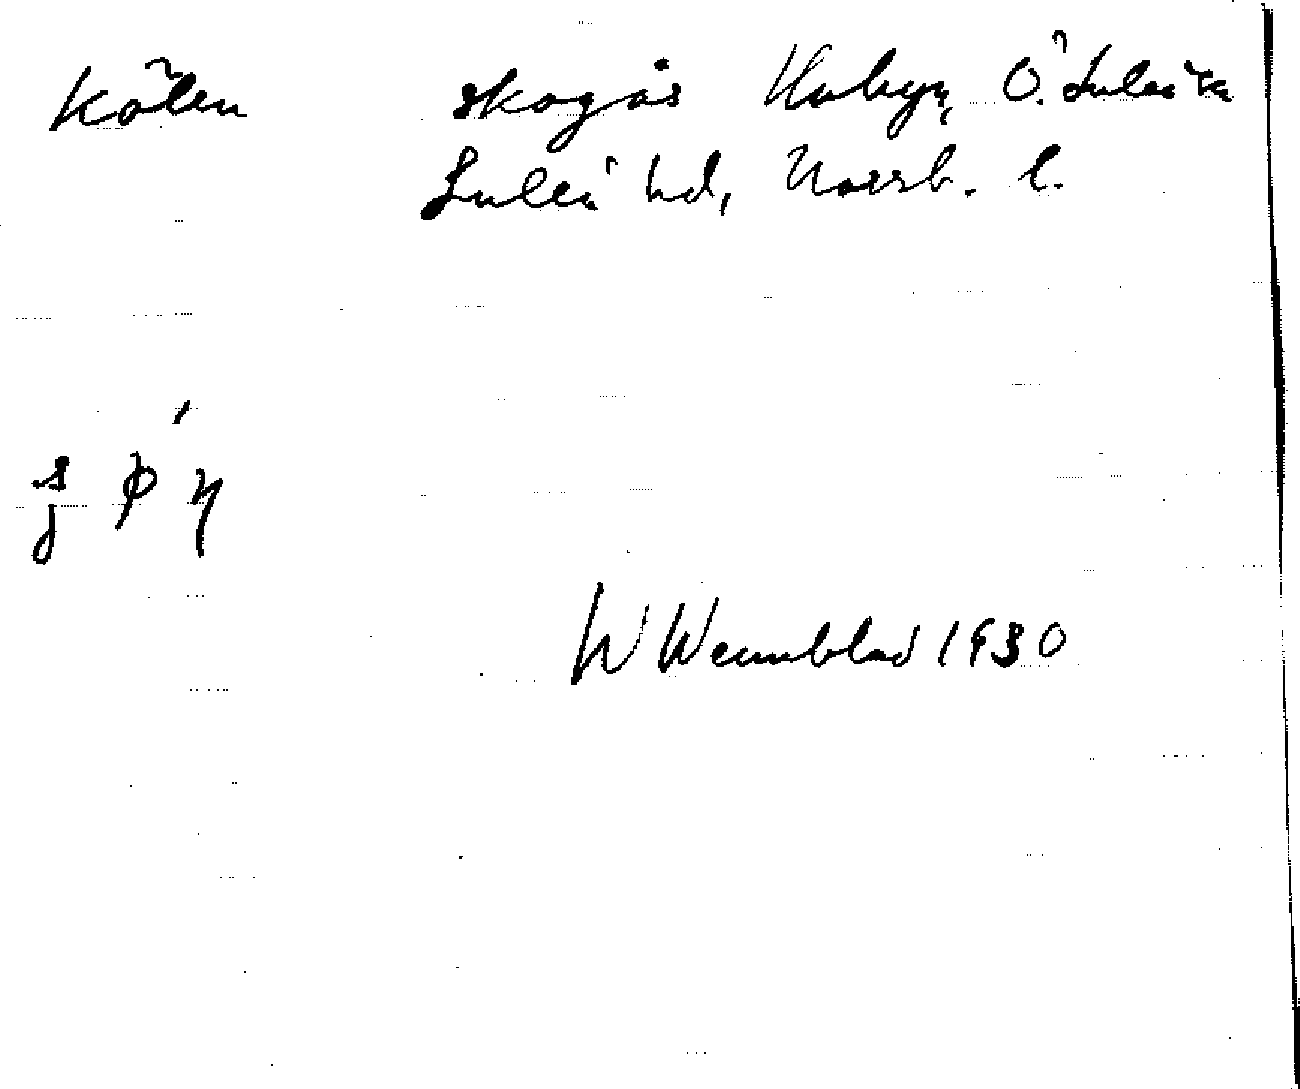 Kölen skogås Huhyn, Ö. Luleå sn
Luleå hd, Norrb. l.
W Wennblad 1930